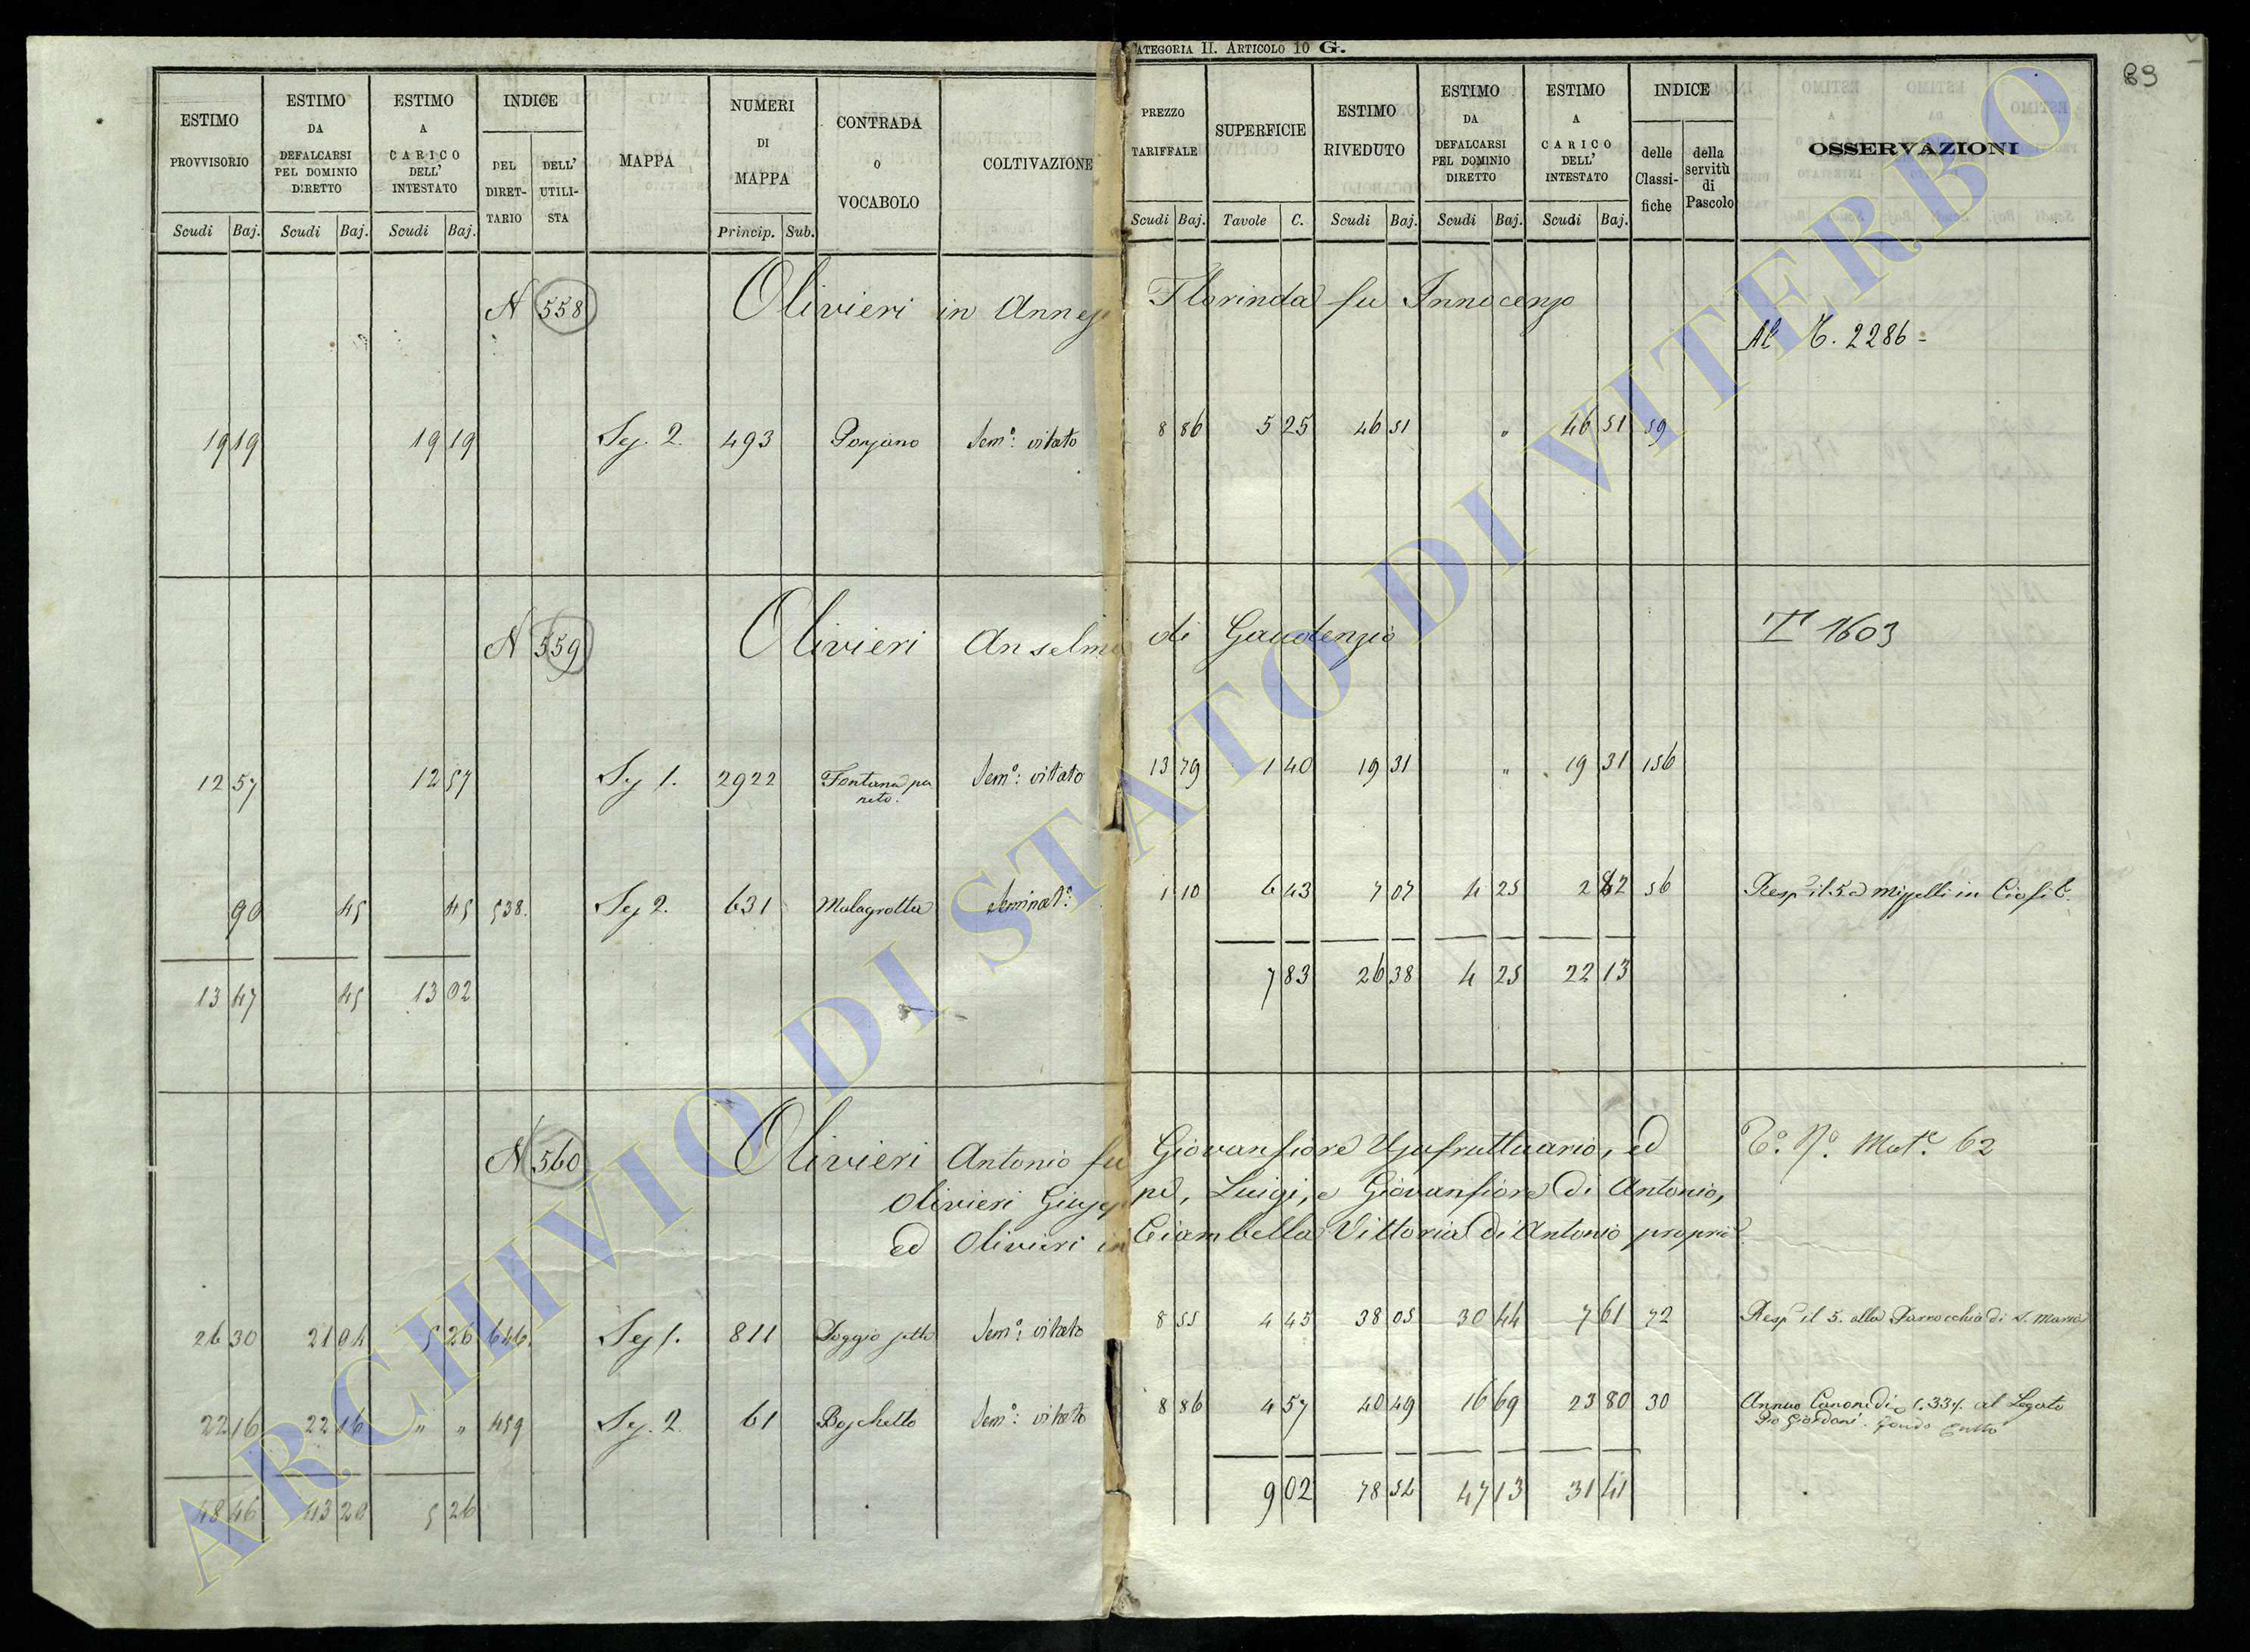 CATEGORIA II. ARTICOLO 10 G.
89
ESTIMO PROVVISORIO Scudi Baj.
ESTIMO DA DEFALCARSI PEL DOMINIO DIRETTO Scudi Baj.
ESTIMO A CARICO DELL' INTESTATO Scudi Baj.
INDICE DEL DIRET-TARIO DELL' UTILI-STA
MAPPA
NUMERI DI MAPPA Princip. Sub.
CONTRADA O VOCABOLO
COLTIVAZIONE
PREZZO TARIFFALE Scudi Baj.
SUPERFICIE Tavole C.
ESTIMO RIVEDUTO Scudi Baj.
ESTIMO DA DEFALCARSI PEL DOMINIO DIRETTO Scudi Baj.
ESTIMO A CARICO DELL' INTESTATO Scudi Baj.
INDICE delle Classi-fiche della servitù di Pascolo
OSSERVAZIONI
N 558 Olivieri in Florinda fu Innocenzo
Al T. 2286
19 19 19 19 Sez. 2. 493 Ponziano Sem.º: vitato 8 86 5 25 46 51 " 46 51 59
N 559 Olivieri Anselmo di Gaudenzio T 1603
12 57 12 57 Sez 1. 2922 Fontana Sem.º: vitato 13 79 1 40 19 31 " 19 31 156
90 45 45 538. Sez 2. 631 Malagrotta Seminat.º: 1 10 6 43 7 07 4 25 2 82 56 Resp.e il 5.a
13 47 45 13 02 7 83 26 38 4 25 22 13
N 560 Olivieri Antonio fu Giovanfiore Usufruttuario, ed Tº. Nº. Mat.e 62
Olivieri Giuseppe, Luigi, e Giovanfiore di Antonio,
ed Olivieri in Ciambella Vittoria di Antonio propri.
26 30 21 04 5 26 646. Sez 1. 811 Poggio Sem.º: vitato 8 55 4 45 38 05 30 44 7 61 72 Resp.e il 5. alla Parrocchia di S. Maria
22 16 22 16 " " 459 Sez. 2. 61 Boschetto Sem.º: vitato 8 86 4 57 40 49 16 69 23 80 30 Annuo Canone di al Legato
Pio Giordani. Fondo
48 46 43 20 5 26 9 02 78 54 47 13 31 41
ARCHIVIO DI STATO DI VITERBO